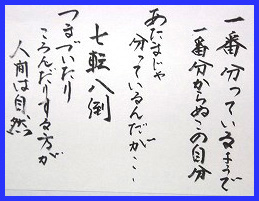 一番分っているようで
一番分からぬこの自分
あたまじゃ
分っているんだが・・
七転八倒
つまづいたり
ころんだりする方が
人間は自然